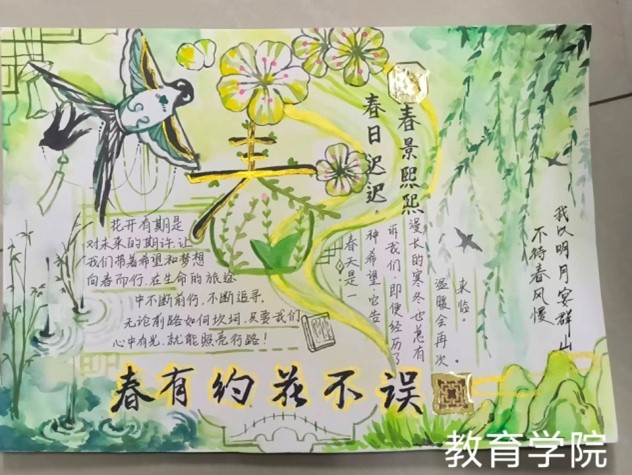 春
春景熙熙
春日迟迟
春天是一
种希望,它告
诉我们,即使经历了
漫长的寒冬,也总有
温暖会再次
来临。
我以明月寄群山
不待春风慢
花开有期是
对未来的期许,让
我们带着希望和梦想
向春而行,在生命的旅途
中不断前行,不断追寻。
无论前路如何坎坷,只要我们
心中有光,就能照亮行路!
春有约花不误
教育学院